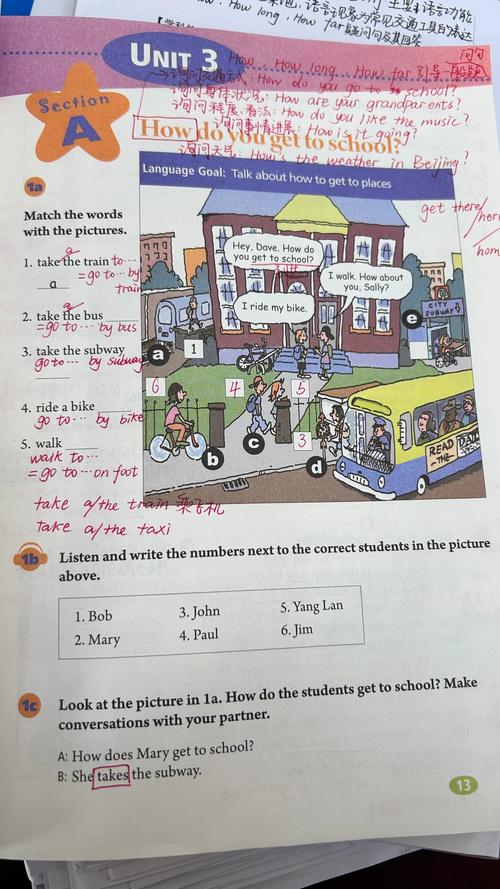 How long, How far 疑问句及其回答
UNIT 3 How, How long, How far 引导
问句
Section
A
询问交通方式: How do you go to school?
询问身体状况: How are your grandparents?
询问程度、看法: How do you like the music?
询问事情进展: How is it going?
How do you get to school?
询问天气: How's the weather in Beijing?
Language Goal: Talk about how to get to places
get there/here/
hom
1a
Match the words
with the pictures.
a
1. take the train to...
a
=go to... by
train
a
2. take the bus
=go to... by bus
3. take the subway
go to... by subway
4. ride a bike
go to... by bike
5. walk
walk to...
=go to... on foot
take a/the train 乘飞机
take a/the taxi
Hey, Dave. How do
you get to school?
I walk. How about
you, Sally?
I ride my bike.
CITY
SUBWAY
e
a
1
6
4
5
3
b
c
d
READ
THE
1b
Listen and write the numbers next to the correct students in the picture
above.
1. Bob 3. John 5. Yang Lan
2. Mary 4. Paul 6. Jim
1c
Look at the picture in 1a. How do the students get to school? Make
conversations with your partner.
A: How does Mary get to school?
B: She takes the subway.
13